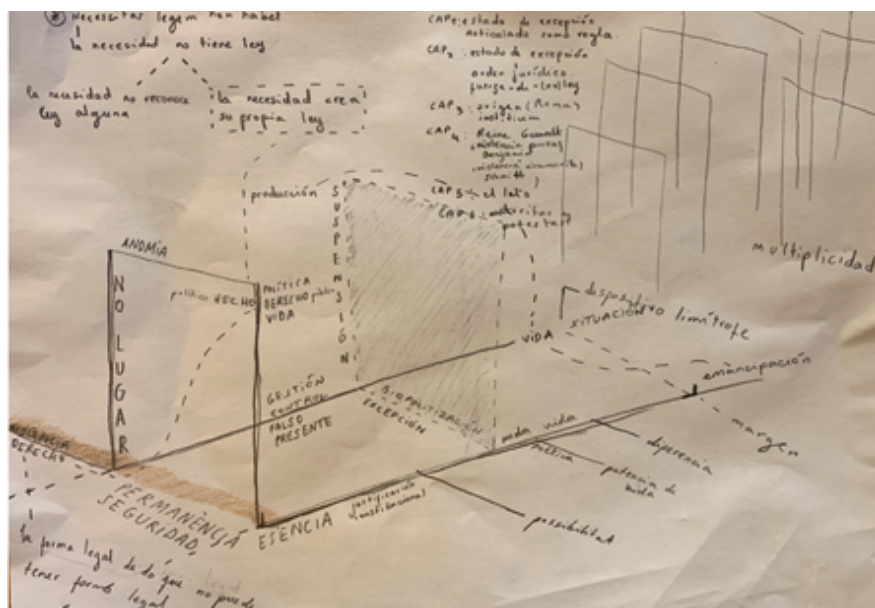 Necessitas legem non habet
la necesidad no tiene ley
la necesidad no reconoce
ley alguna
la necesidad crea
su propia ley
CAP1: estado de excepción
articulado como regla.
CAP2: estado de excepción
orden jurídico.
fuerza-de-ley
CAP3: origen (Roma)
iustitium
CAP4:
violencia pura
Benjamin
Schmitt)
CAP5:
CAP6: auctoritas y
potestas
producción
SUSPENSIÓN
multiplicidad
ANOMIA
NO LUGAR
político HECHO
POLÍTICA
DERECHO público
VIDA
GESTIÓN
CONTROL
FALSO
PRESENTE
BIOPOLITIZACIÓN
EXCEPCIÓN
VIDA
dispositivo limítrofe
SITUACIÓN
emancipación
margen
nuda vida
diferencia
potencia de
possibilitat
DERECHO
PERMANÈNCIA
SEGURIDAD,
ESENCIA
justificación
la forma legal de lo que no puede
tener forma legal